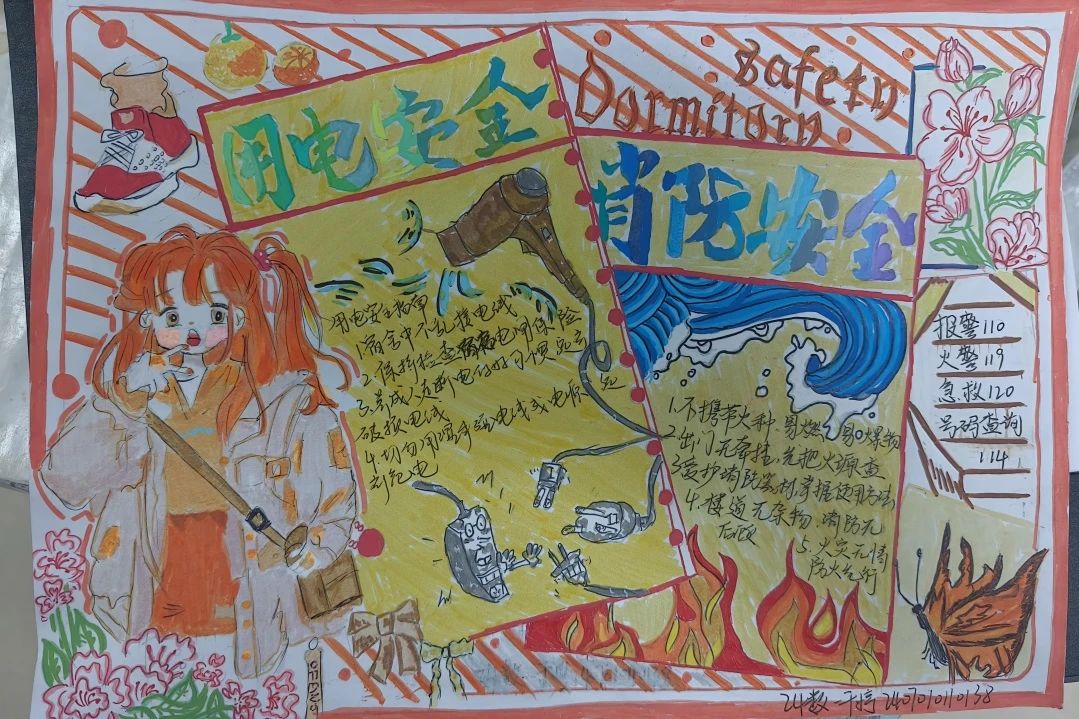 用电安全
safety
Dormitory
消防安全
用电安全指南
1.宿舍中不乱接电线
2.保持检查 电闸保险
3.养成人走断电的好习惯
破损电线
4.切勿用湿手碰电线或电源
1.不携带火种,易燃,易爆物
2.出门无牵挂,先把火源查
3.爱护消防器材,掌握使用方法
4.楼道无杂物 消防无
后顾
5.火灾无情
防火先行
报警110
火警119
急救120
号码查询
114
24数一 2407010110138